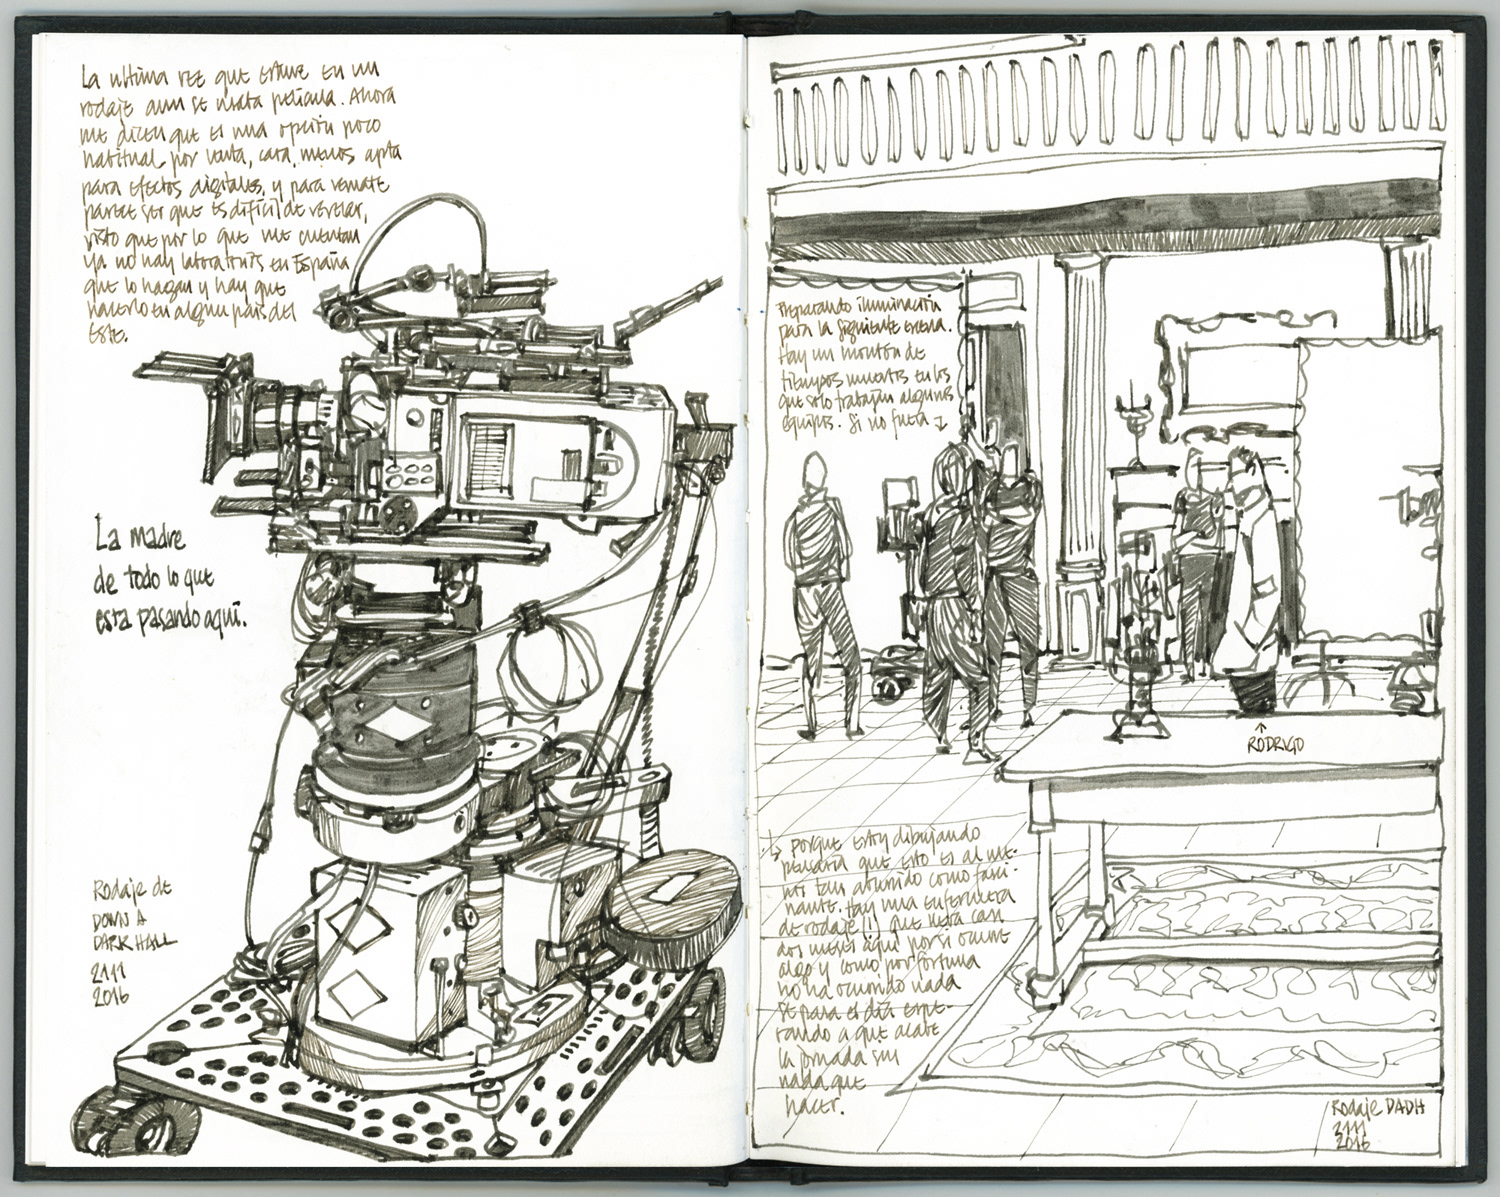 La ultima vez que estuve en un
rodaje aun se usaba película. Ahora
me dicen que es una opción poco
habitual, por lenta, cara, menos apta
para efectos digitales, y para remate
parece ser que es difícil de revelar,
visto que por lo que me cuentan
ya no hay laboratorios en España
que lo hagan y hay que
hacerlo en algun país del
Este.
La madre
de todo lo que
esta pasando aquí.
Rodaje de
DOWN A
DARK HALL
2111
2016
Preparando iluminación
para la siguiente escena.
Hay un montón de
tiempos muertos en los
que solo trabajan algunos
equipos. Si no fuera
porque estoy dibujando
pensaría que esto es al me-
nos tan aburrido como fasci-
nante. Hay una enfermera
de rodaje que lleva casi
dos meses aquí por si ocurre
algo y como por fortuna
no ha ocurrido nada
se pasa el día espe-
rando a que acabe
la jornada sin
nada que
hacer.
RODRIGO
Rodaje DADH
2111
2016